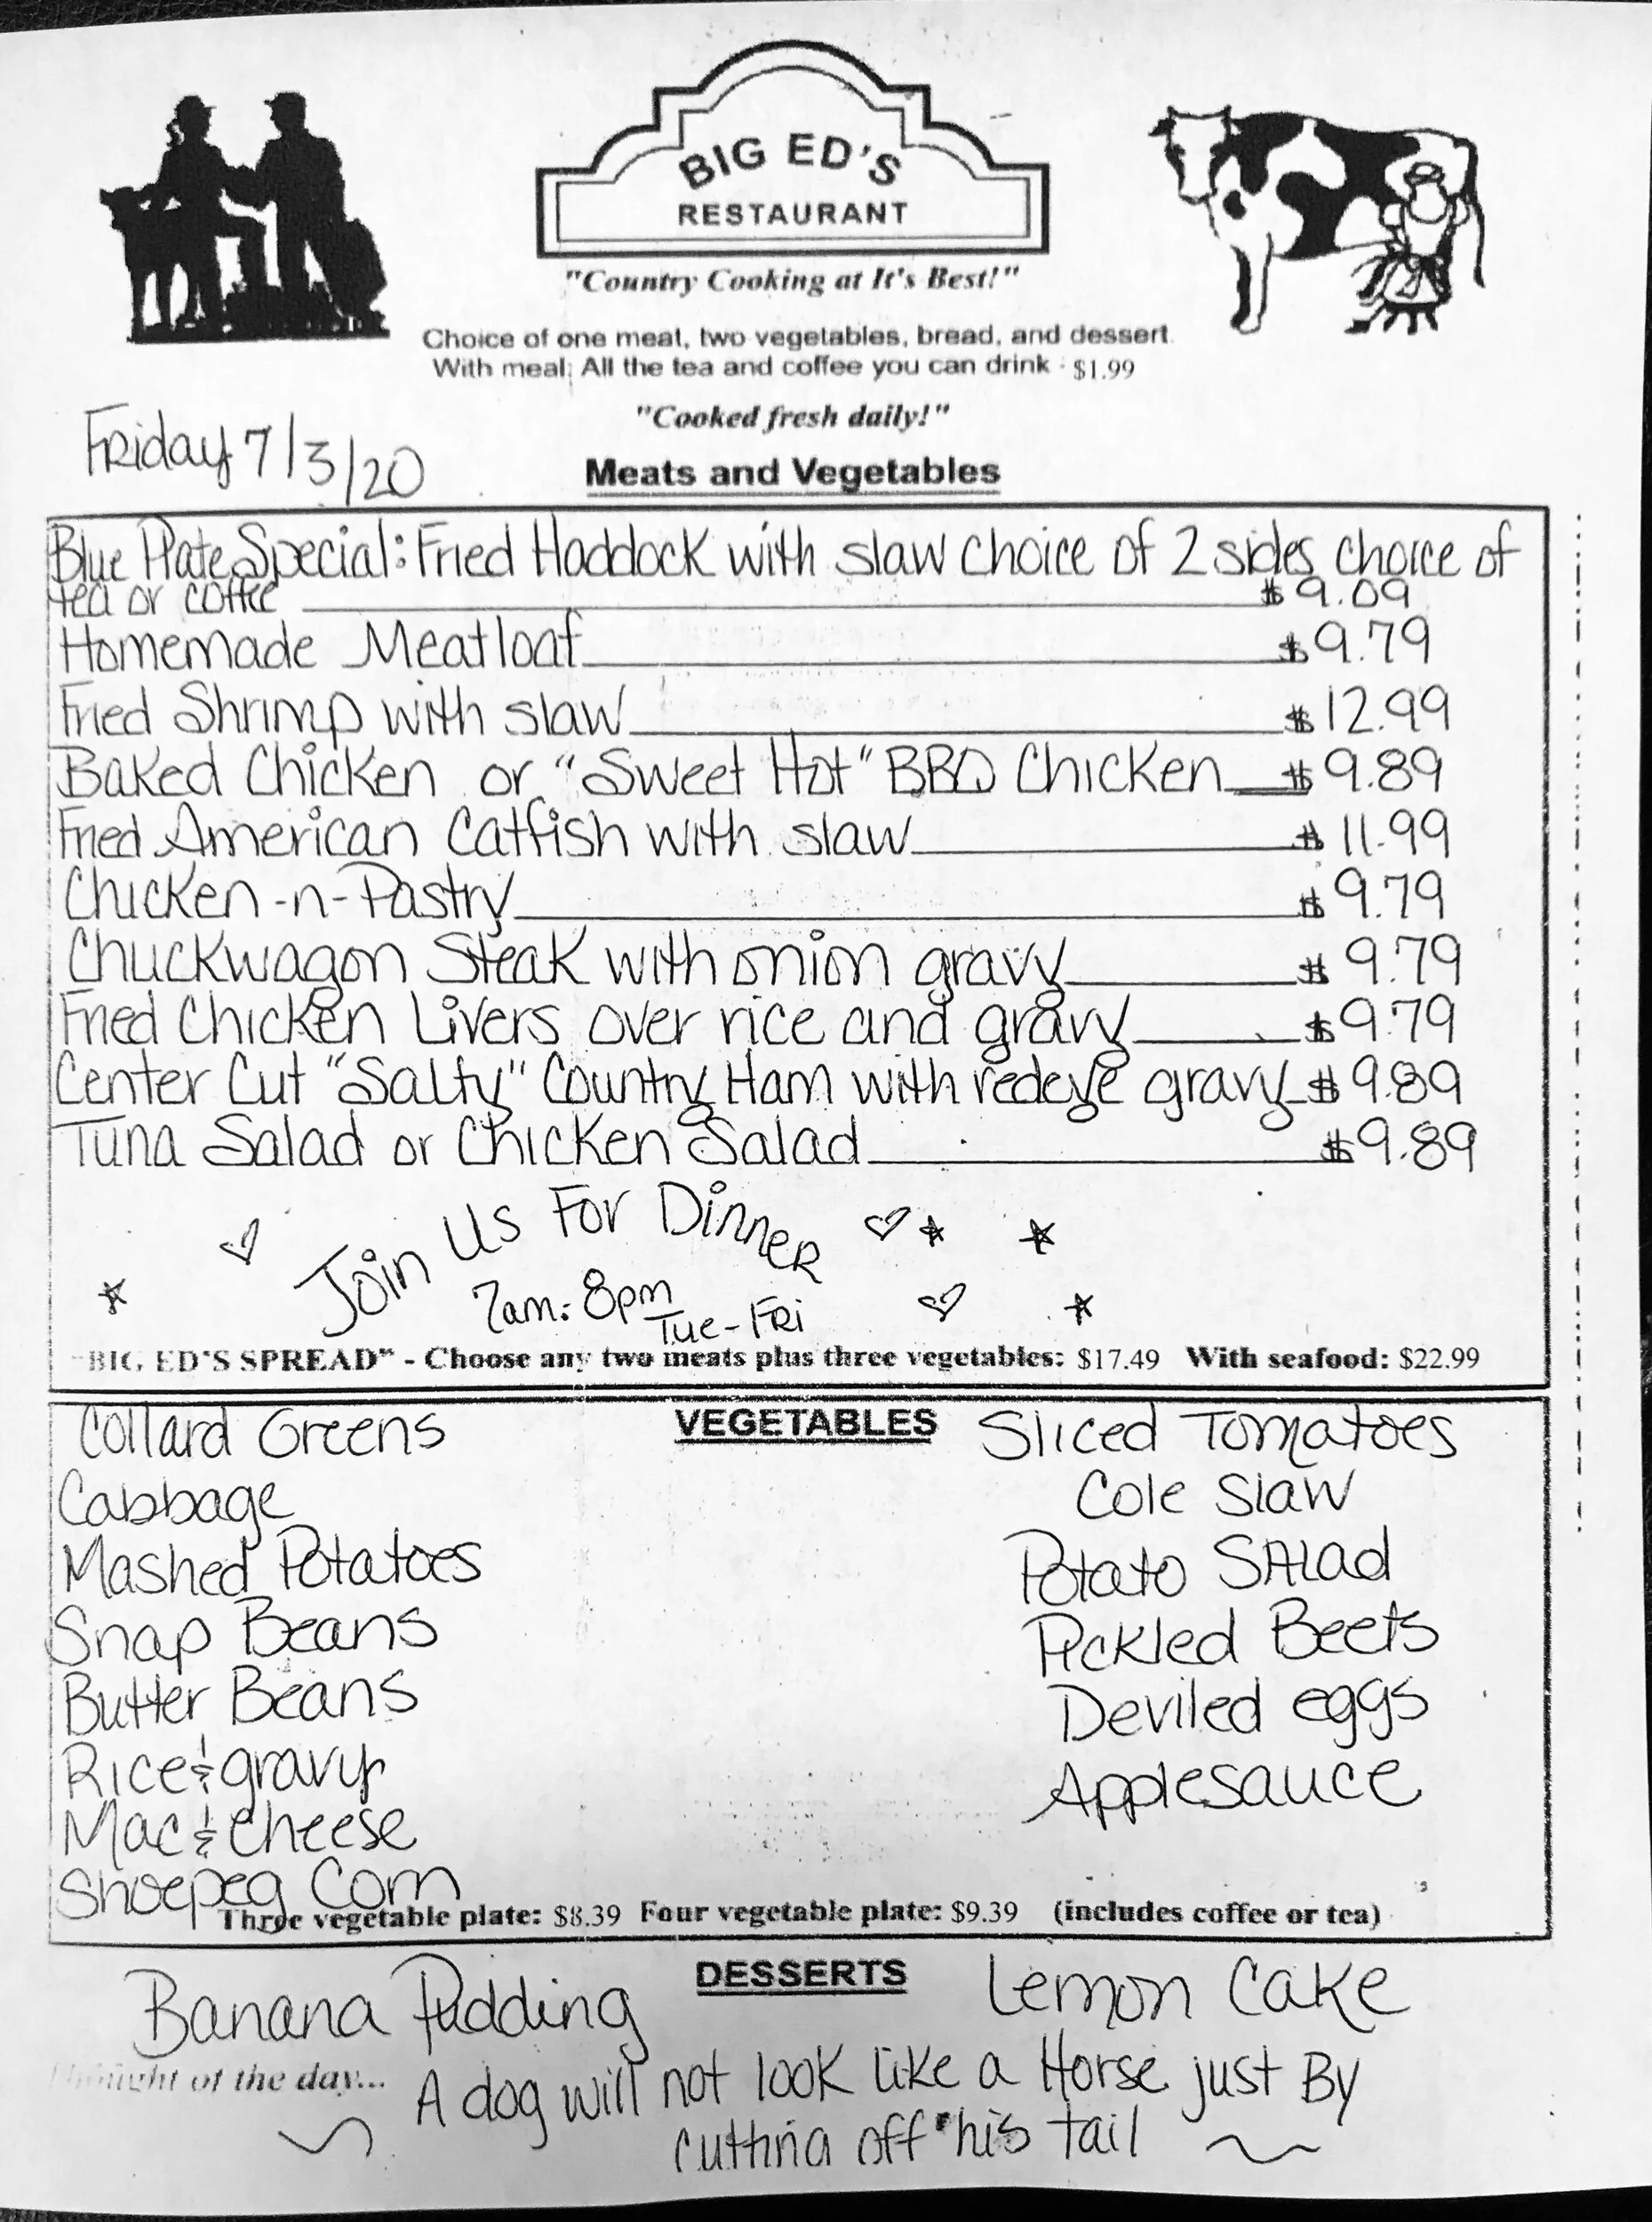 BIG ED'S
RESTAURANT
"Country Cooking at It's Best!"
Choice of one meat, two vegetables, bread, and dessert.
With meal: All the tea and coffee you can drink - $1.99
"Cooked fresh daily!"
Friday 7/3/20
Meats and Vegetables
Blue Plate Special: Fried Haddock with slaw choice of 2 sides choice of
tea or coffee $9.09
Homemade Meatloaf $9.79
Fried Shrimp with slaw $12.99
Baked Chicken or "Sweet Hot" BBQ Chicken $9.89
Fried American Catfish with slaw $11.99
Chicken-n-Pastry $9.79
Chuckwagon Steak with onion gravy $9.79
Fried Chicken Livers over rice and gravy $9.79
Center Cut "Salty" Country Ham with redeye gravy $9.89
Tuna Salad or Chicken Salad $9.89
Join Us For Dinner
7am-8pm
Tue-Fri
"BIG ED'S SPREAD" - Choose any two meats plus three vegetables: $17.49 With seafood: $22.99
VEGETABLES
Collard Greens
Cabbage
Mashed Potatoes
Snap Beans
Butter Beans
Rice & gravy
Mac & cheese
Shoepeg Corn
Sliced Tomatoes
Cole Slaw
Potato Salad
Pickled Beets
Deviled eggs
Applesauce
Three vegetable plate: $8.39 Four vegetable plate: $9.39 (includes coffee or tea)
DESSERTS
Banana Pudding Lemon Cake
Thought of the day...
A dog will not look like a Horse just By
cutting off his tail